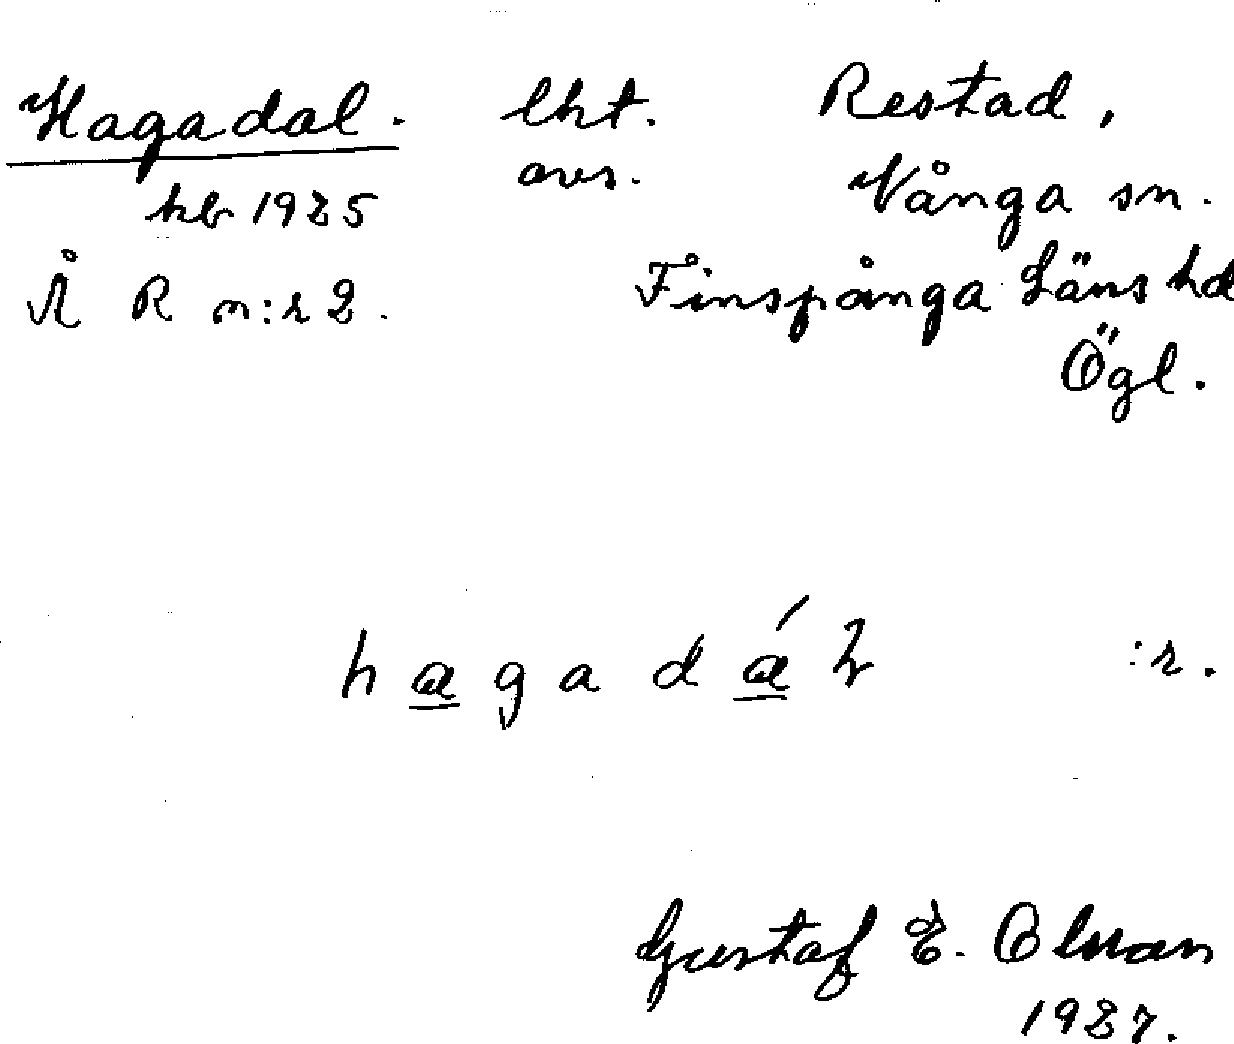 Hagadal. lht. Restad,
avs. Vånga sn.
hb 1925
Å R n:r 2. Finspånga Läns hd
Ögl.
hagadál :r.
Gustaf E. Olsson
1927.